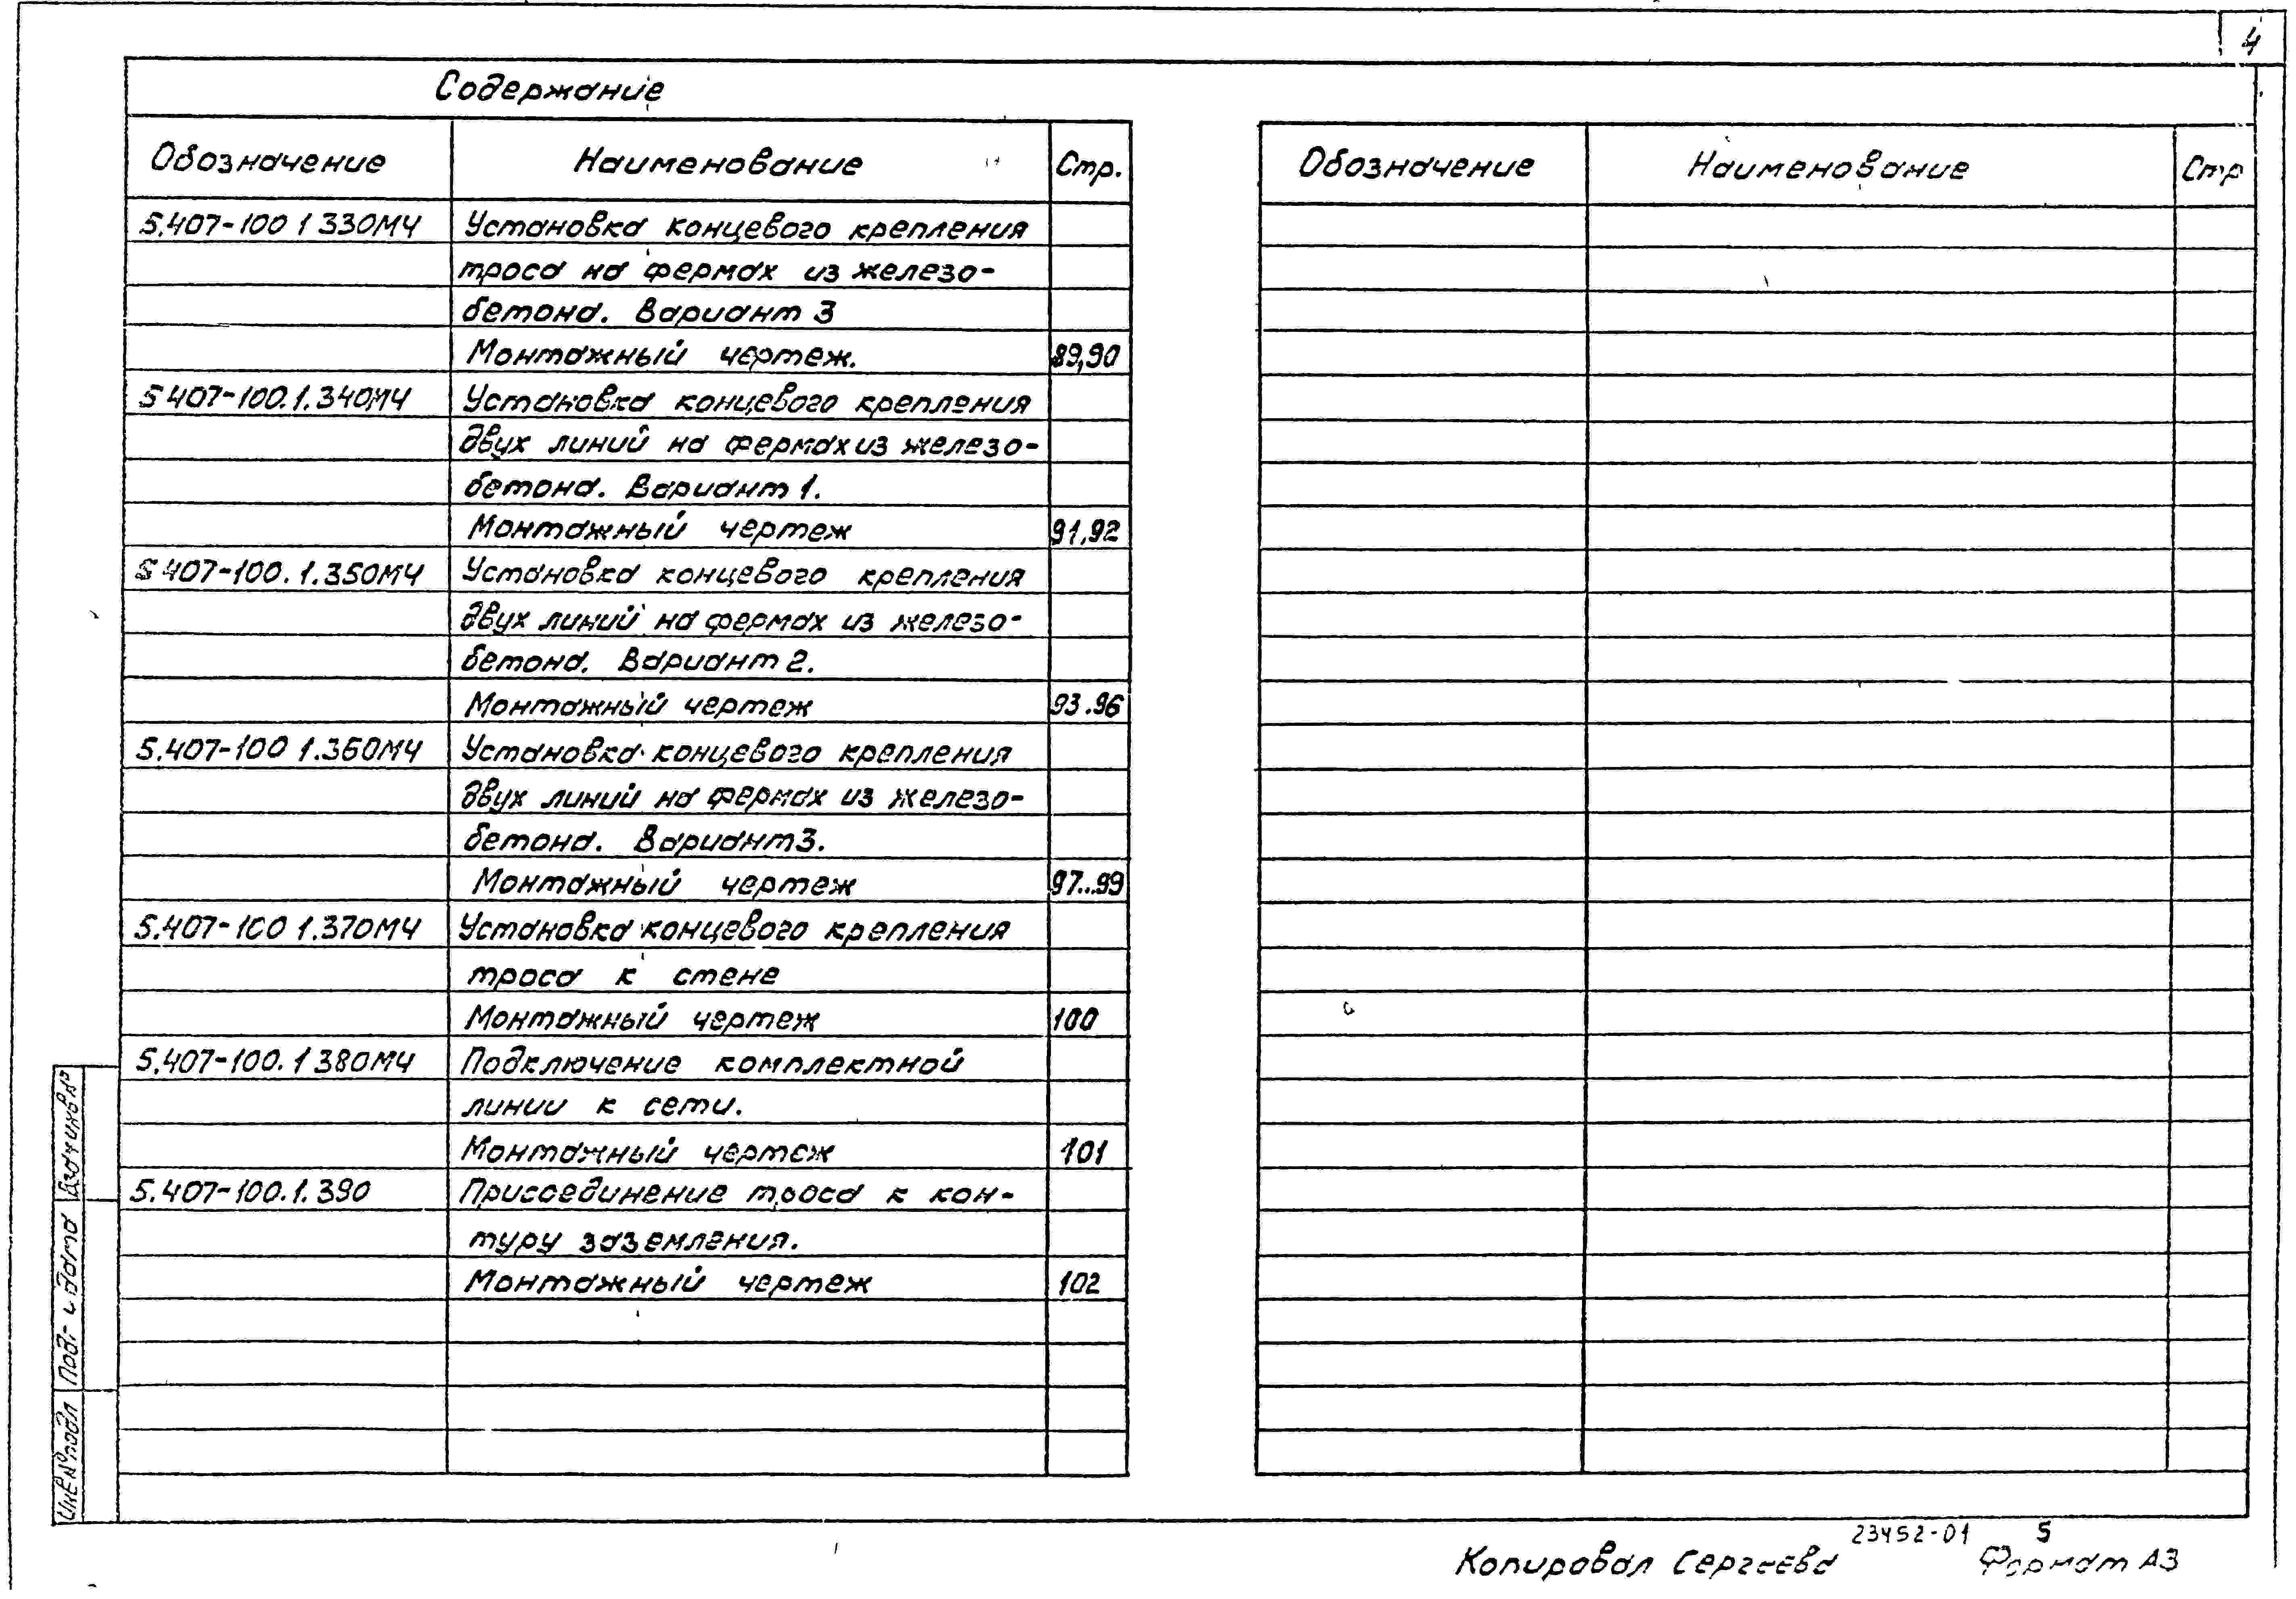 4
Содержание
Обозначение Наименование Стр.
5.407-100 1 330МЧ Установка концевого крепления
троса на фермах из железо-
бетона. Вариант 3
Монтажный чертеж. 89,90
5 407-100.1.340МЧ Установка концевого крепления
двух линий на фермах из железо-
бетона. Вариант 1.
Монтажный чертеж 91,92
5 407-100.1.350МЧ Установка концевого крепления
двух линий на фермах из железо-
бетона. Вариант 2.
Монтажный чертеж 93.96
5.407-100 1.360МЧ Установка концевого крепления
двух линий на фермах из железо-
бетона. Вариант 3.
Монтажный чертеж 97...99
5.407-100 1.370МЧ Установка концевого крепления
троса к стене
Монтажный чертеж 100
5.407-100.1 380МЧ Подключение комплектной
линии к сети.
Монтажный чертеж 101
5.407-100.1.390 Присоединение троса к кон-
туру заземления.
Монтажный чертеж 102
Обозначение Наименование Стр
Взам инв №
Подп и дата
Инв № подл
23452-01 5
Копировал Сергеева Формат А3